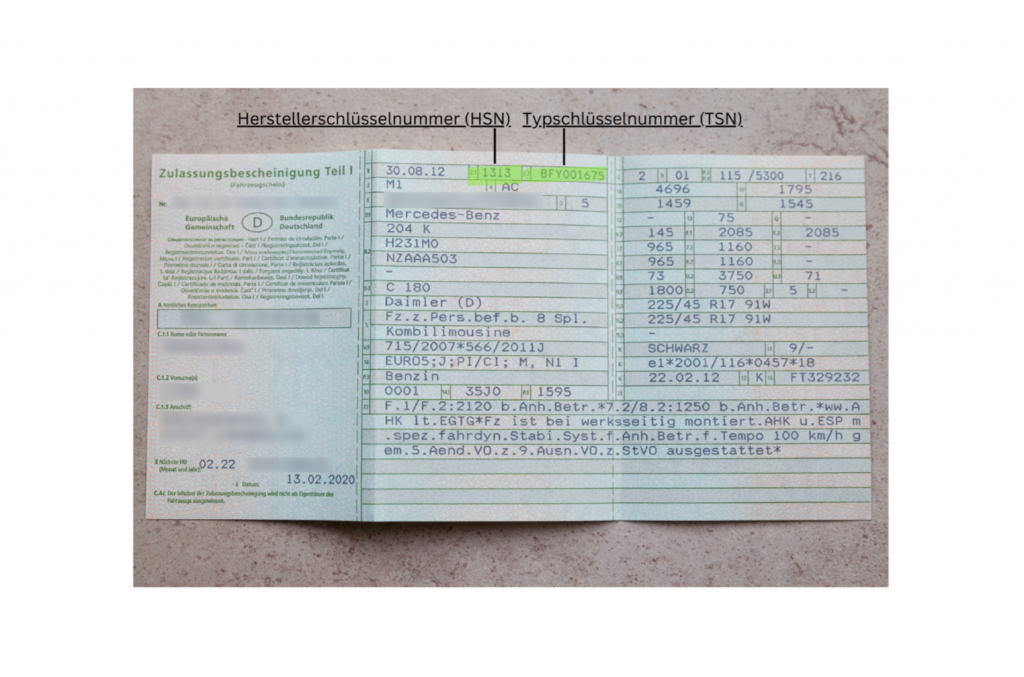 Herstellerschlüsselnummer (HSN) Typschlüsselnummer (TSN)
Zulassungsbescheinigung Teil I
(Fahrzeugschein)
Nr.
Europäische Gemeinschaft
D
Bundesrepublik Deutschland
A Amtliches Kennzeichen
C.1.1 Name oder Firmenname
C.1.2 Vorname(n)
C.1.3 Anschrift
X Nächste HU (Monat und Jahr) 02.22
I Datum: 13.02.2020
C.4c Der Inhaber der Zulassungsbescheinigung wird nicht als Eigentümer des Fahrzeugs ausgewiesen.
30.08.12 1313 BFY001675
M1 AC
5
Mercedes-Benz
204 K
H231M0
NZAAA503
-
C 180
Daimler (D)
Fz.z.Pers.bef.b. 8 Spl.
Kombilimousine
715/2007*566/2011J
EURO5;J;PI/CI; M, N1 I
Benzin
0001 35J0 1595
F.1/F.2:2120 b.Anh.Betr.*7.2/8.2:1250 b.Anh.Betr.*ww.A
HK lt.EGTG*Fz ist bei werksseitig montiert.AHK u.ESP m
.spez.fahrdyn.Stabi.Syst.f.Anh.Betr.f.Tempo 100 km/h g
em.5.Aend.VO.z.9.Ausn.VO.z.StVO ausgestattet*
2 01 115 /5300 216
4696 1795
1459 1545
- 75 -
145 2085 2085
965 1160 -
965 1160 -
73 3750 71
1800 750 5 -
225/45 R17 91W
225/45 R17 91W
-
SCHWARZ 9/-
e1*2001/116*0457*18
22.02.12 K FT329232